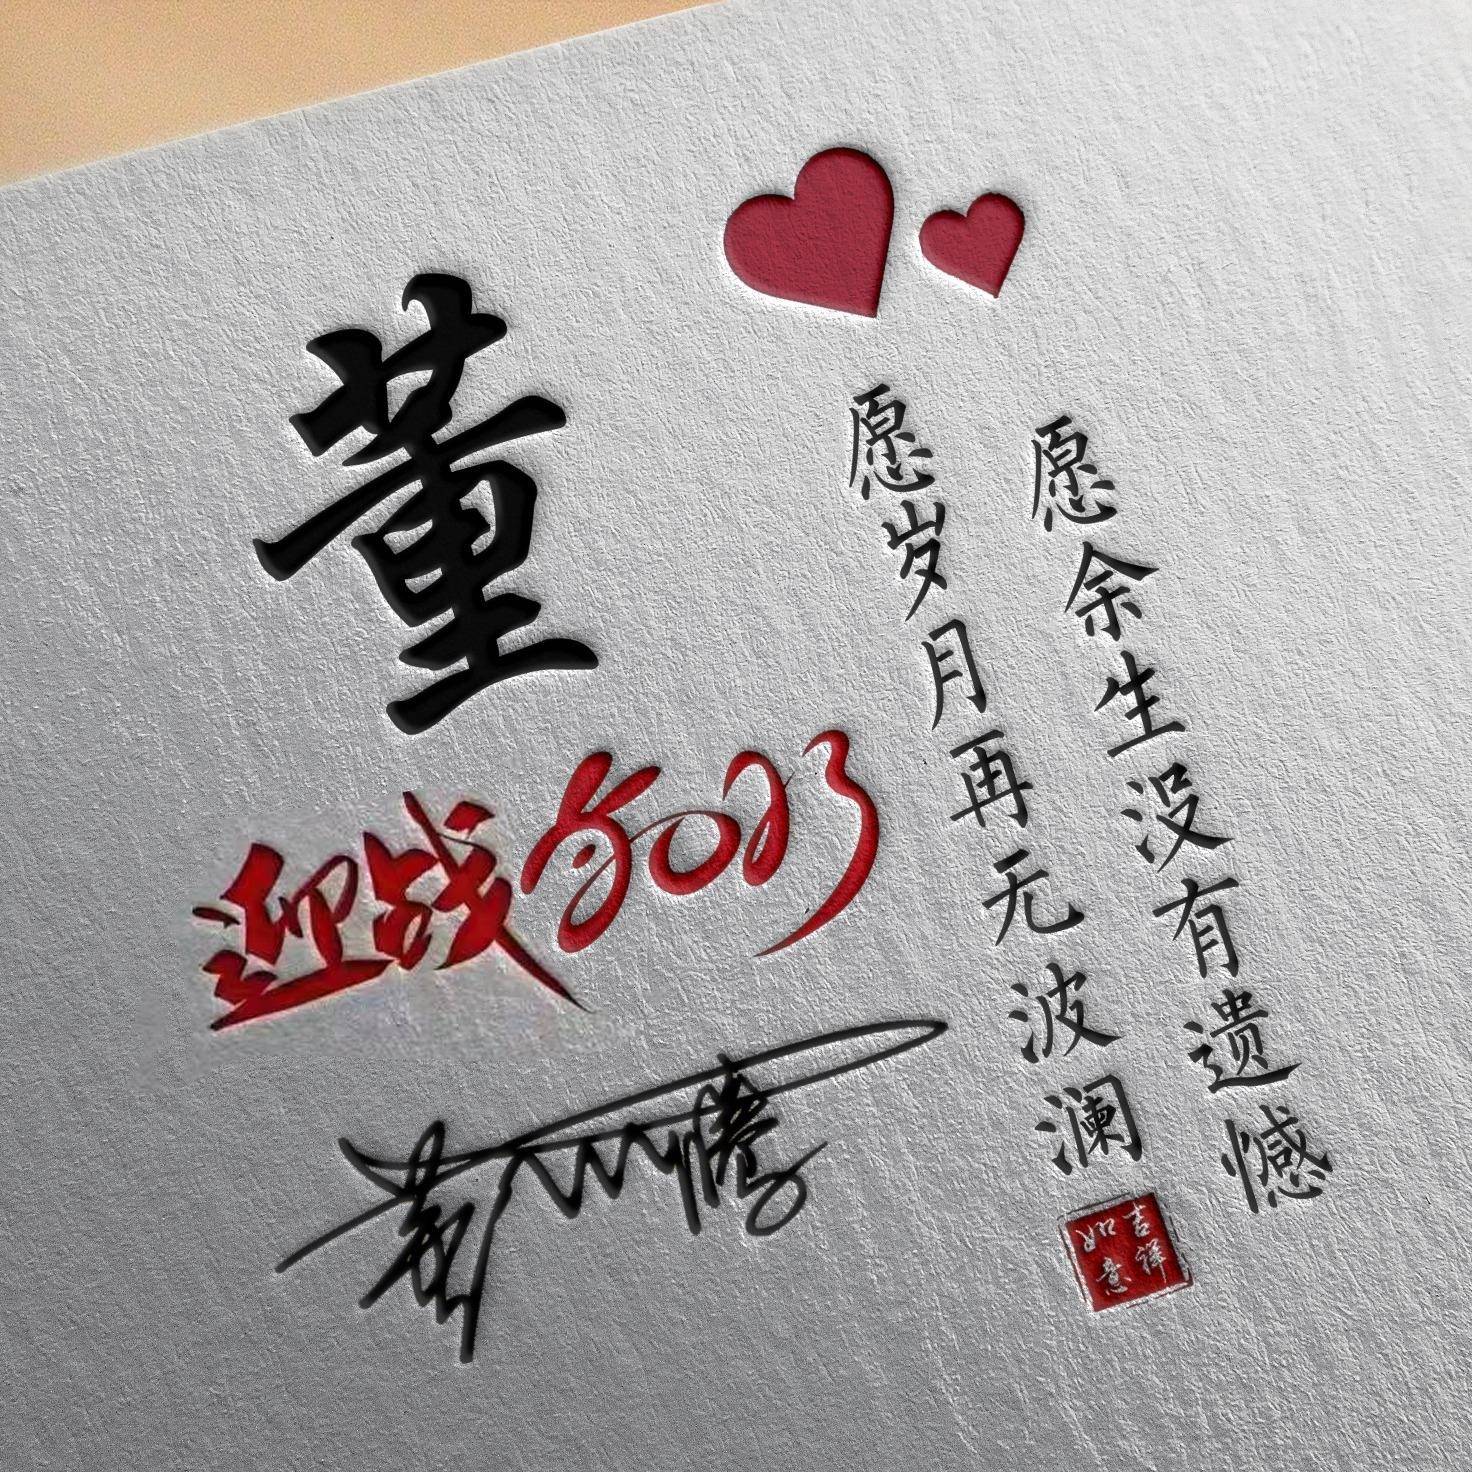 董
迎战2023
愿余生没有遗憾
愿岁月再无波澜
吉祥如意